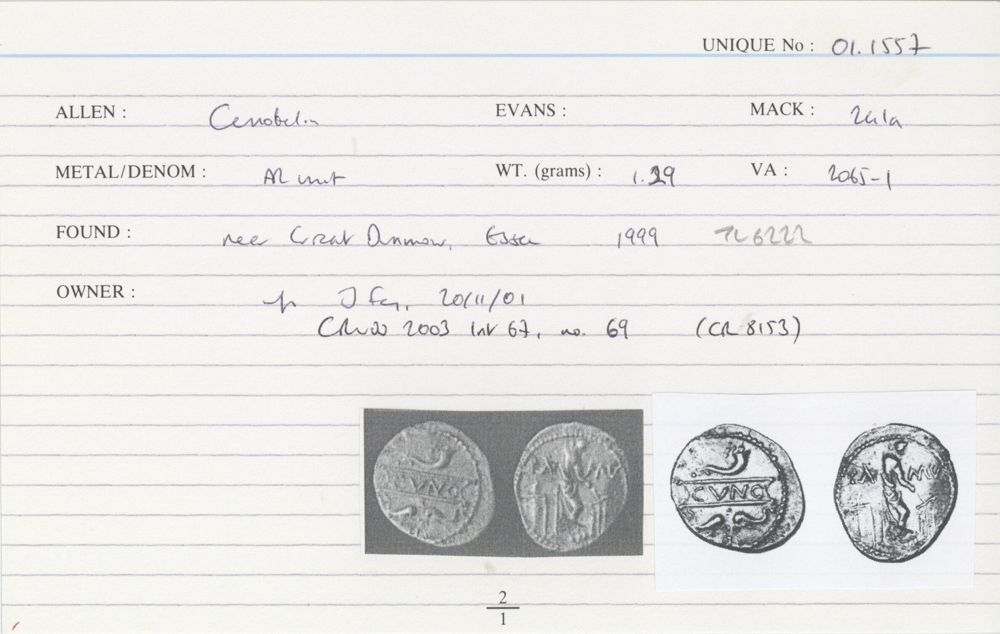 UNIQUE No : 01.1557
ALLEN : Cunobelin EVANS : MACK : 241a
METAL/DENOM : AR unit WT. (grams) : 1.29 VA : 2065-1
FOUND : near Great Dunmow, Essex 1999 TL6222
OWNER : J 20/11/01
2003 67, no. 69 (CR 8153)
CVNO
CVNO
2
1